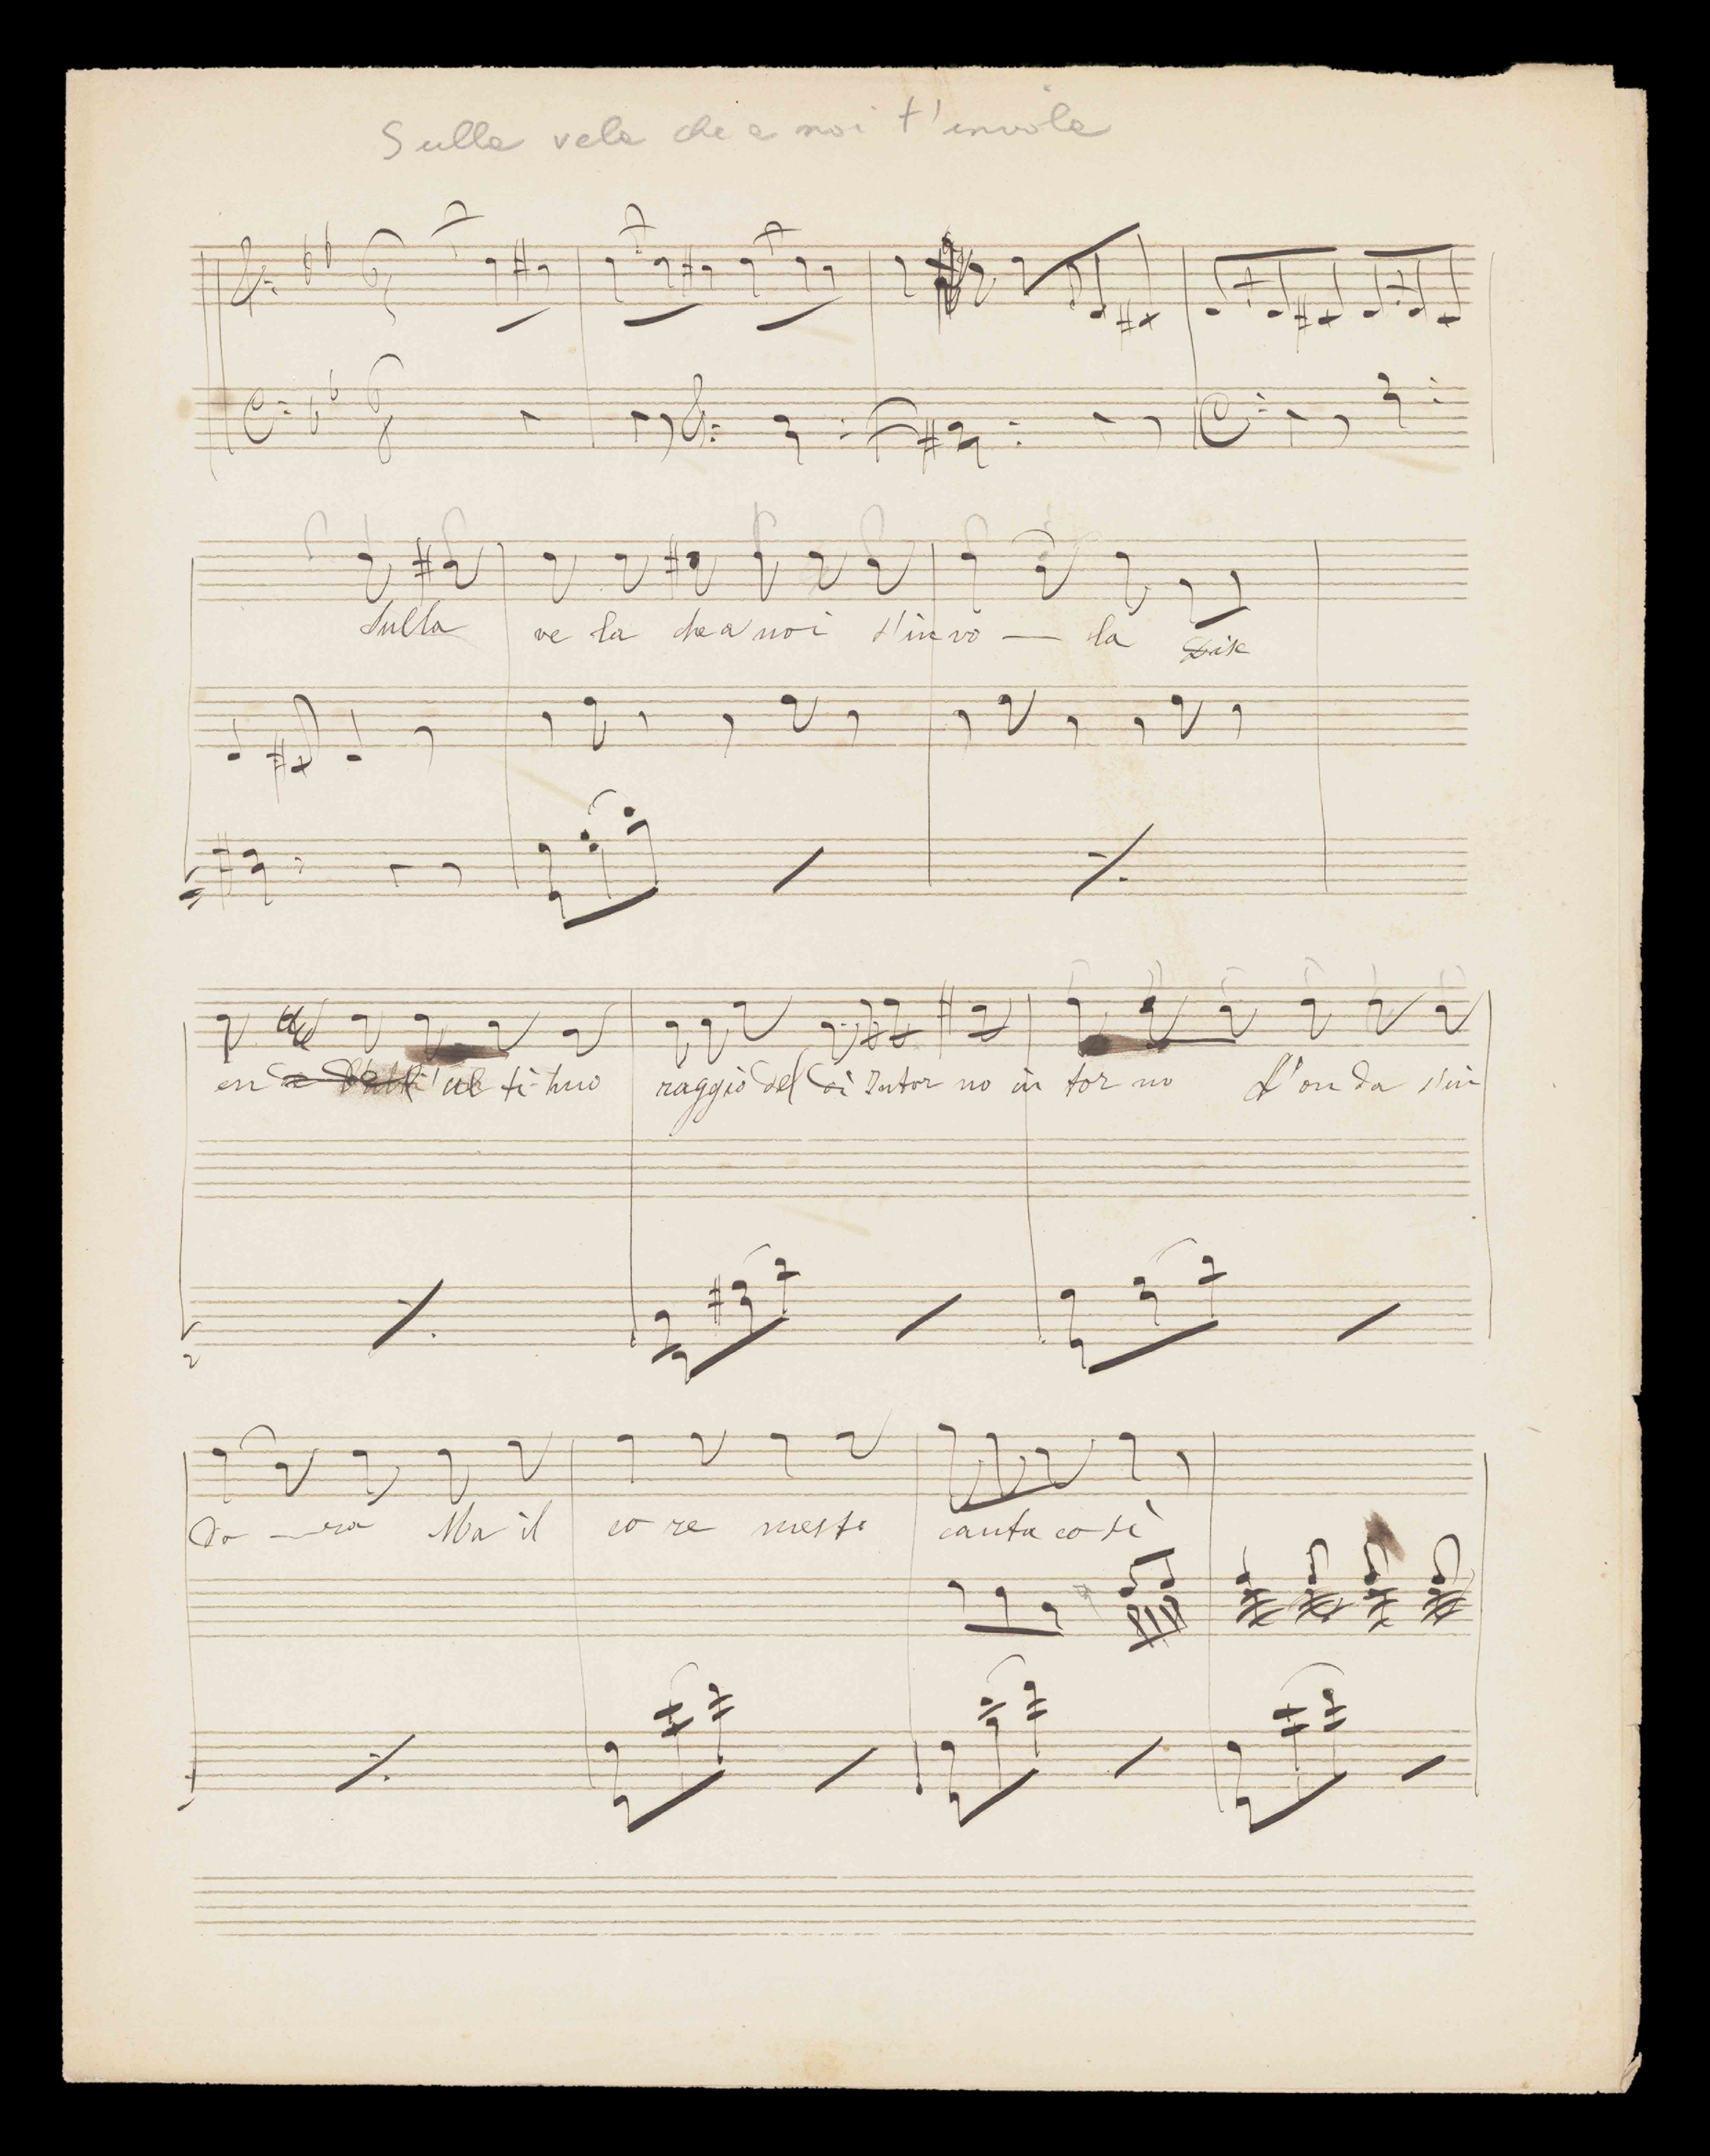 Sulla vela che a noi t'invola
Sulla ve la che a noi t'in vo — la
en ul ti-mo raggio del dì Intor no in tor no L'on da s'in
do — ra Ma il co re mesto canta co sì